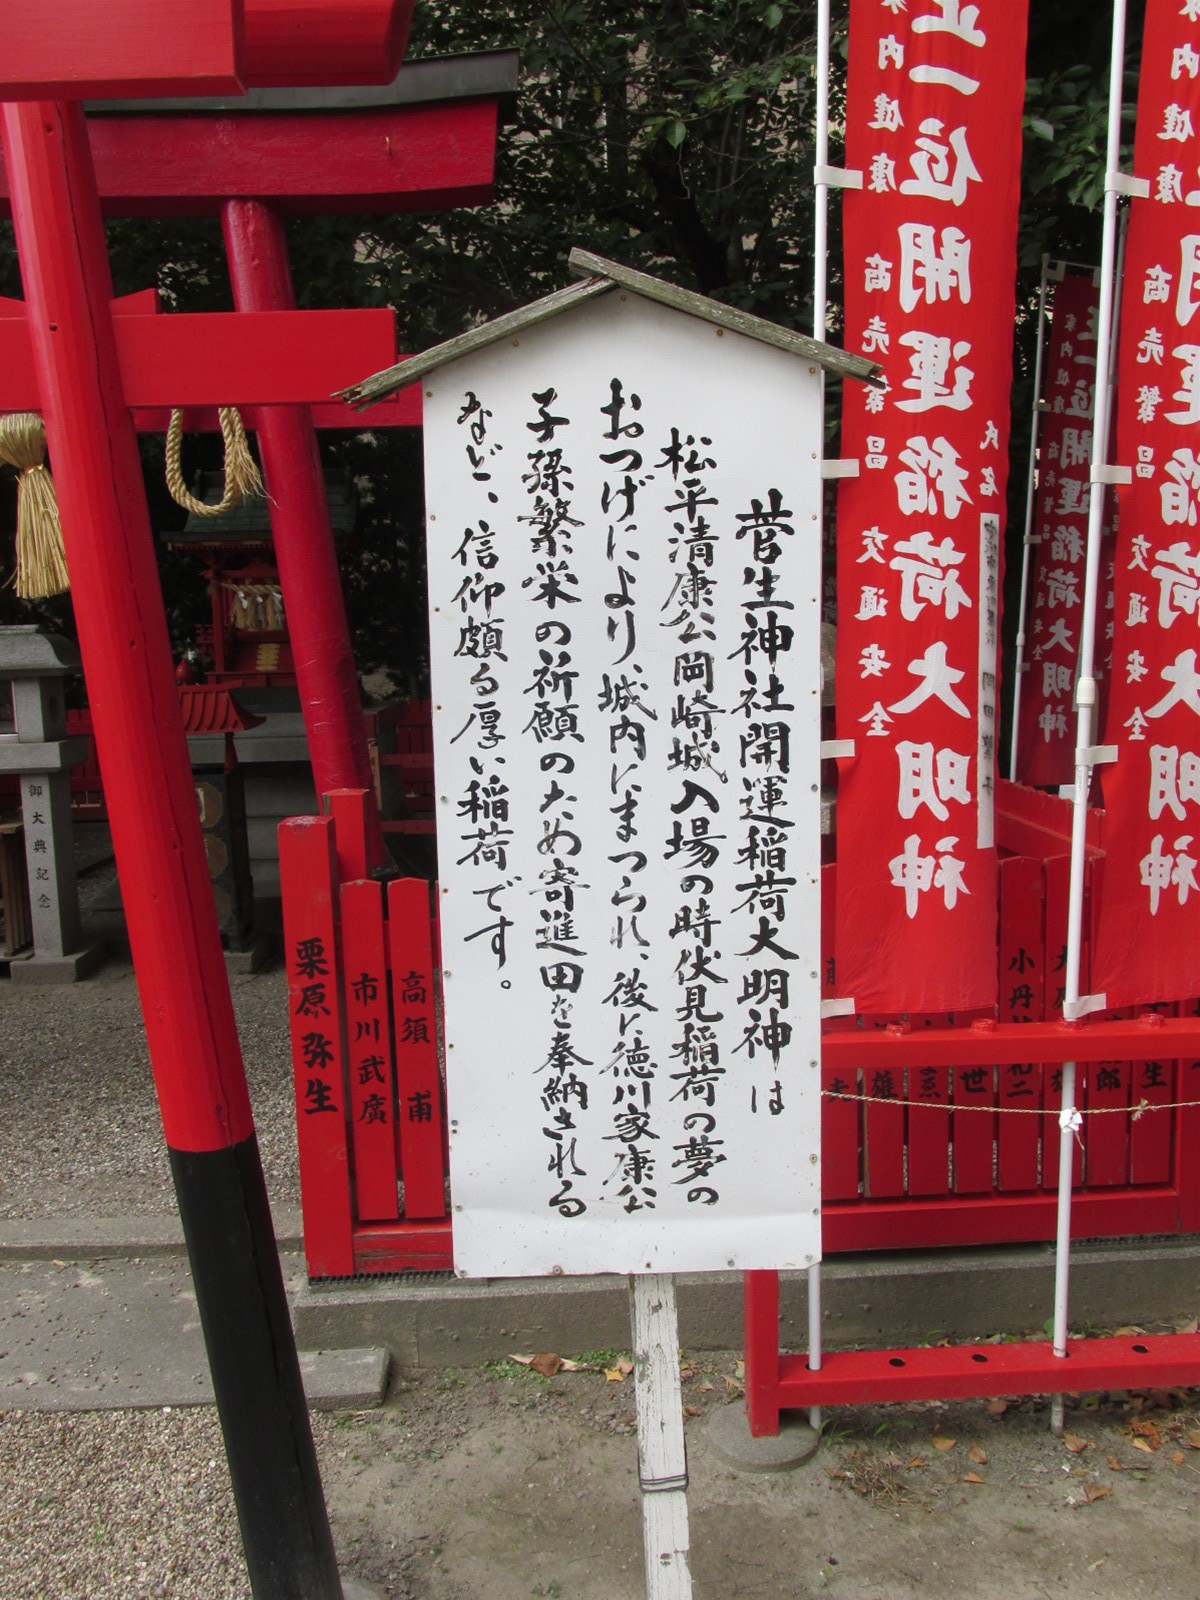 菅生神社開運稲荷大明神は
松平清康公岡崎城入場の時伏見稲荷の夢の
おつげにより、城内にまつられ、後に徳川家康公
子孫繁栄の祈願のため寄進田を奉納される
など、信仰頗る厚い稲荷です。
正一位開運稲荷大明神
家内健康
商売繁昌
交通安全
氏名
正一位開運稲荷大明神
家内健康
商売繁昌
交通安全
一位開運稲荷大明神
高須甫
市川武廣
栗原弥生
御大典記念
小丹